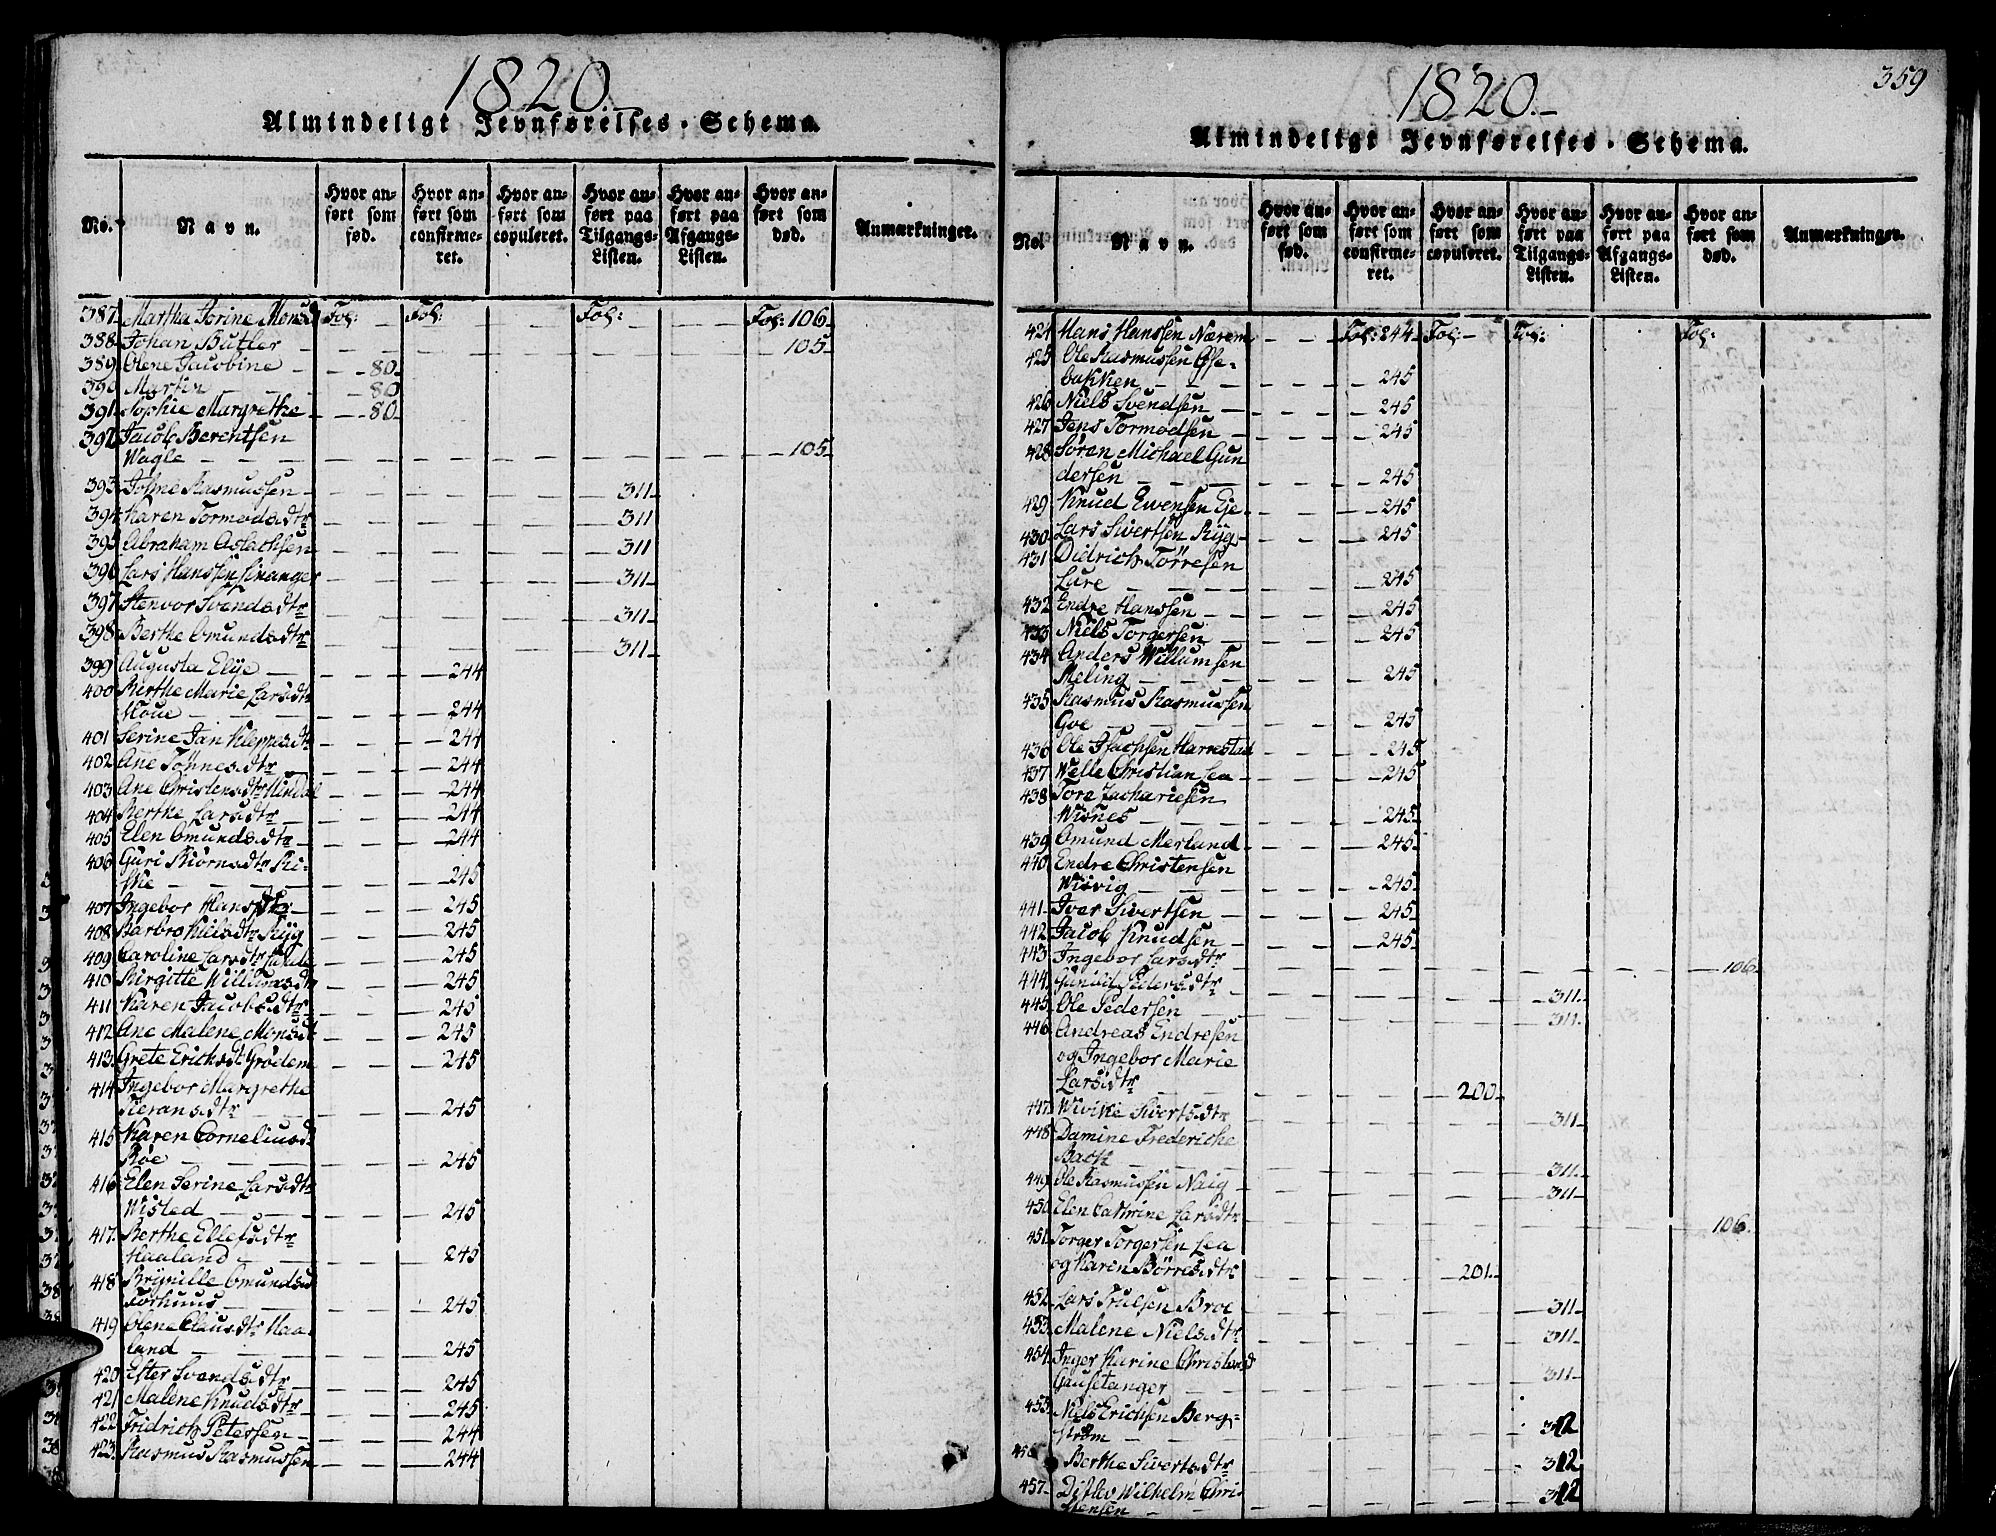 1820.-
Almindeligt Jevnførelses-Schema.
No. Navn. Hvor anført som fød. Hvor anført som confirmeret. Hvor anført som copuleret. Hvor anført paa Tilgangs-Listen. Hvor anført paa Afgangs-Listen. Hvor anført som død. Anmærkninger.
387 Martha Sorine Monsd Fol: Fol: Fol: Fol: 106
388 Johan Butler 105
389 Olene Jacobine 80
390 Martin 80
391 Sophie Margrethe 80
392 Jacob Berentsen
Wagle 105
393 Johne Rasmussen 311
394 Karen Tormodsdtr 311
395 Abraham Aslachsen 311
396 Lars Hanssen 311
397 Stenvor Svendsdtr 311
398 Berthe Omundsdtr 311
399 Augusta Elye 244
400 Berthe Marie Larsdtr
Houe 244
401 Serine Jan Kleppesdtr 244
402 Ane Tønnesdtr 244
403 Ane Christensdtr Windal 244
404 Berthe Larsdtr 244
405 Elen Omundsdtr 244
406 Guri Biørnsdtr Ki-
ske 245
407 Ingebor Hansdtr 245
408 Barbro Nielsdtr Ryg 245
409 Caroline Larsdtr 245
410 Birgitte Willumsdtr 245
411 Karen Jacobsdtr 245
412 Ane Malene Monsdt 245
413 Grete Ericksdt Grødem 245
414 Ingebor Margrethe
Sieransdtr 245
415 Karen Corneliusdt
Bøe 245
416 Elen Serine Larsdtr
Wisted 245
417 Berthe Ellefsdtr
Haaland 245
418 Brynille Omundsd
Torhuus 245
419 Olene Clausdtr Haa-
land 245
420 Ester Svendsdtr 245
421 Malene Knudsdtr 245
422 Fridrich Petersen 244
423 Rasmus Rasmussen 244
359
1820.-
Almindeligt Jevnførelses-Schema.
No. Navn. Hvor anført som fød. Hvor anført som confirmeret. Hvor anført som copuleret. Hvor anført paa Tilgangs-Listen. Hvor anført paa Afgangs-Listen. Hvor anført som død. Anmærkninger.
424 Hans Hanssen Nærem Fol: 244 Fol: Fol: Fol:
425 Ole Rasmussen Øse-
bakken 245
426 Niels Svendsen 245
427 Jens Tormodsen 245
428 Søren Michael Gun
dersen 245
429 Knud Evensen Eje 245
430 Lars Sivertsen Ryg 245
431 Didrich Tørresen
Lure 245
432 Endre Hanssen 245
433 Niels Torgersen 245
434 Anders Willumsen
Meling 245
435 Rasmus Rasmussen
Goe 245
436 Ole Isachsen Harrestad 245
437 Welle Christian Lea 245
438 Tore Zachariesen
Wisnes 245
439 Omund Merland 245
440 Endre Christensen
Wisvig 245
441 Iver Sivertsen 245
442 Jacob Knudsen 245
443 Ingebor Larsdtr 106
444 Gunild Pedersdtr 311
445 Ole Pedersen 311
446 Andreas Endresen
og Ingebor Marie
Larsdtr 200
447 Wivike Sivertsdtr 311
448 Damine Frederiche
Bach 311
449 Ole Rasmussen Naig 311
450 Elen Cathrine Larsdtr 106
451 Torger Torgersen Lea
og Karen Børresdtr 201
452 Lars Trulsen Broe 311
453 Malene Nielsdtr 311
454 Inger Karine Christensd
Gausetanger 311
455 Niels Erichsen Berg-
strøm 312
456 Berthe Sivertsdtr 312
457 Ditlev Wilhelm Chri-
stensen 312